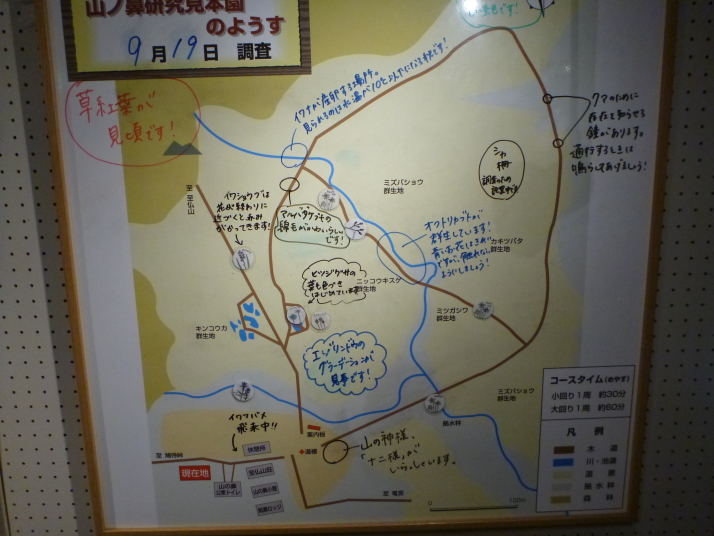 山ノ鼻研究見本園
のようす
9月19日 調査
草紅葉が
見頃です！
イワナが産卵する場所。
クマのために
存在を知らせる
鐘があります。
通行するときは
鳴らしてあげましょう！
シカ
柵
至 至仏山
イワショウブは
花が終わりに
近づくと赤み
がかってきます！
ミズバショウ
群生地
マルバダケブキの
綿毛がかわいらしい
です！
オクトリカブトが
群生しています！
青いお花はきれい
ですが、触れない
ようにしましょう！
カキツバタ
群生地
ヒツジグサの
葉も色づき
はじめています
ニッコウキスゲ
群生地
ミツガシワ
群生地
キンコウカ
群生地
エゾリンドウの
グラデーションが
見事です！
ミズバショウ
群生地
拠水林
イワツバメ
飛来中！！
案内板
道標
山の神様、
「十二様」が
いらっしゃいます。
至 鳩待峠
現在地
休憩所
至仏山荘
山の鼻
公衆トイレ
山の鼻小屋
国民ロッジ
至 竜宮
0
100m
コースタイム(めやす)
小回り1周 約30分
大回り1周 約60分
凡例
木道
川・池塘
湿原
拠水林
森林